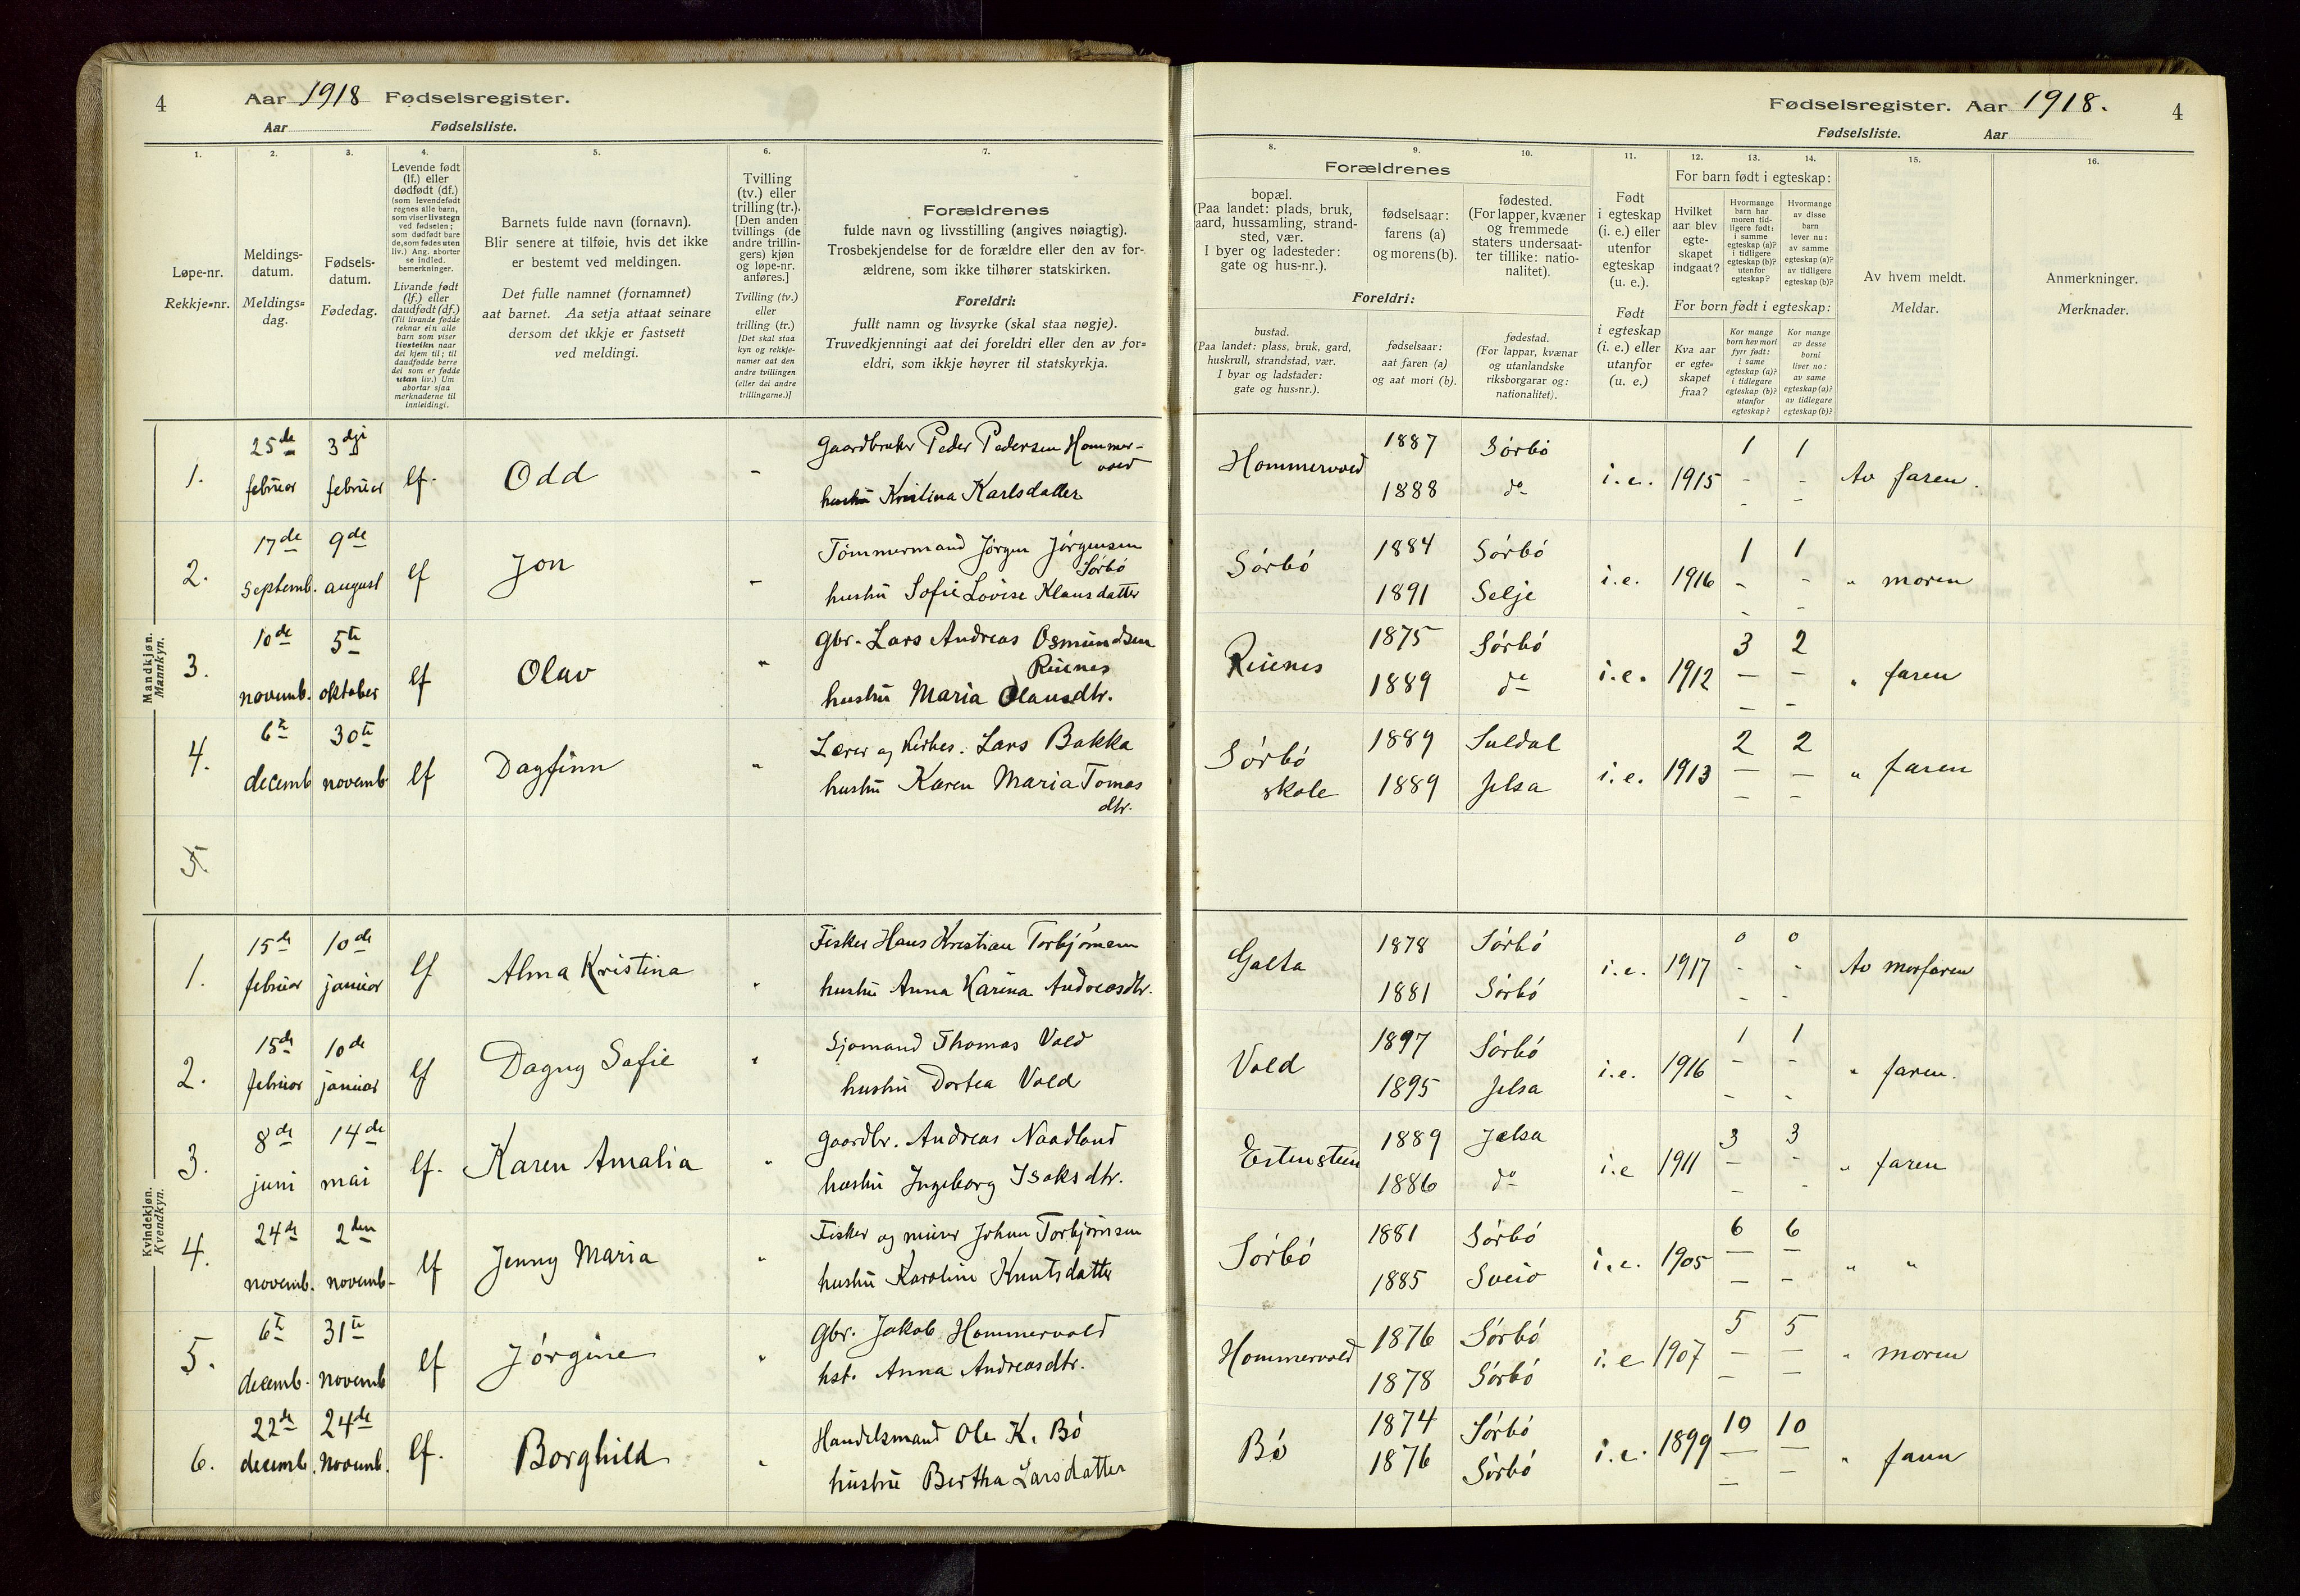 4
Aar 1918 Fødselsregister.
Aar Fødselsliste.
1.
2.
3.
4.
5.
6.
7.
Løpe-nr.
Rekkje=nr.
Meldings-
datum.
Meldings=
dag.
Fødsels-
datum.
Fødedag.
Levende født
(lf.) eller
dødfødt (df.)
(som levendefødt
regnes alle barn,
som viser livstegn
ved fødselen;
som dødfødt bare
de, som fødes uten
liv.) Ang. aborter
se indled.
bemerkninger.
Livande født
(lf.) eller
daudfødt (df.)
(Til livande fødde
reknar ein alle
barn som viser
livsteikn naar
dei kjem til; til
daudfødde berre
dei som er fødde
utan liv.) Um
abortar sjaa
merknaderne til
innleidingi.
Barnets fulde navn (fornavn).
Blir senere at tilføie, hvis det ikke
er bestemt ved meldingen.
Det fulle namnet (fornamnet)
aat barnet. Aa setja attaat seinare
dersom det ikkje er fastsett
ved meldingi.
Tvilling
(tv.) eller
trilling (tr.).
[Den anden
tvillings (de
andre trillin-
gers) kjøn
og løpe-nr.
anføres.]
Tvilling (tv.)
eller
trilling (tr.)
[Det skal staa
kyn og rekkje-
numer aat den
andre tvillingen
(eller dei andre
trillingarne.)]
Forældrenes
fulde navn og livsstilling (angives nøiagtig).
Trosbekjendelse for de forældre eller den av for-
ældrene, som ikke tilhører statskirken.
Foreldri:
fullt namn og livsyrke (skal staa nøgje).
Truvedkjenningi aat dei foreldri eller den av for=
eldri, som ikkje høyrer til statskyrkja.
Mandkjøn.
Mannkyn.
1. 25de februar 3dji februar lf. Odd - Gaardbruker Peder Pedersen Hommer-
vold
hustru Kristina Karlsdatter
2. 17de septemb. 9de august lf Jon - Tømmermand Jørgen Jørgensen
Sørbø
hustru Sofie Lovise Klausdatter
3. 10de novemb. 5te oktober lf Olav " Gbr. Lars Andreas Osmundsen
Riienes
hustru Maria Olausdtr.
4. 6te decemb 30te novemb lf Dagfinn " Lærer og kirkes. Lars Bakka
hustru Karen Maria Tomas
dtr.
5.
Kvindekjøn.
Kvendkyn.
1. 15de februar 10de januar lf Alma Kristina " Fisker Hans Kristian Torbjørnsen
hustru Anna Karina Andreasdtr.
2. 15de februar 10de januar lf Dagny Sofie " Sjømand Thomas Vold
hustru Dortea Vold
3. 8de juni 14de mai lf. Karen Amalia " Gaardbr. Andreas Naadland
hustru Ingeborg Isaksdtr.
4. 24de novemb. 2den novemb- lf Jenny Maria " Fisker og murer Johan Torbjørnsen
hustru Karoline Knutsdatter
5. 6te decemb. 31te novemb lf Jørgine " Gbr. Jakob Hommervold
hst. Anna Andreasdtr.
6. 22de decemb. 24de novemb. lf. Borghild " Handelsmand Ole K. Bø
hustru Bertha Larsdatter
Fødselsregister. Aar 1918. 4
Fødselsliste. Aar
8.
9.
10.
11.
12.
13.
14.
15.
16.
Forældrenes
bopæl.
(Paa landet: plads, bruk,
aard, hussamling, strand-
sted, vær.
I byer og ladesteder:
gate og hus-nr.).
fødselsaar:
farens (a)
og morens (b).
fødested.
(For lapper, kvæner
og fremmede
staters undersaat-
ter tillike: natio-
nalitet).
Foreldri:
bustad.
(Paa landet: plass, bruk, gard,
huskrull, strandstad, vær.
I byar og ladstader:
gate og hus=nr.).
fødselsaar:
aat faren (a)
og aat mori (b).
fødestad.
(For lappar, kvænar
og utanlandske
riksborgarar og:
nationalitet).
Født
i egteskap
(i. e.) eller
utenfor
egteskap
(u. e.).
Født
i egteskap
(i. e.) eller
utanfor
(u. e.)
For barn født i egteskap:
Hvilket
aar blev
egte-
skapet
indgaat?
Hvormange
barn har
moren tid-
ligere født:
i samme
egteskap (a)?
i tidligere
egteskap (b)?
utenfor
egteskap?
Hvormange
av disse
barn
lever nu:
av samme
egteskap (a)?
av tidligere
egteskap (b)?
For born født i egteskap:
Kva aar
er egte=
skapet
fraa?
Kor mange
born hev mori
fyrr født:
i same
egteskap (a)?
i tidlegare
egteskap (b)?
utanfor
egteskap?
Kor mange
av desse
borni
liver no:
av same
egteskap (a)?
av tidlegare
egteskap (b)?
Av hvem meldt.
Meldar.
Anmerkninger.
Merknader.
Hommervold 1887 Sørbø i.e. 1915 1 1 Av faren.
1888 do
Sørbø 1884 Sørbø i.e. 1916 1 1 " moren
1891 Selje
Riienes 1875 Sørbø i.e. 1912 3 2 " faren
1889 do
Sørbø skole 1889 Suldal i.e. 1913 2 2 " faren
1889 Jelsa
Galta 1878 Sørbø i.e. 1917 0 0 Av morfaren
1881 Sørbø
Vold 1897 Sørbø i.e. 1916 1 1 " faren.
1895 Jelsa
Eltenstein 1889 Jelsa i.e 1911 3 3 " faren
1886 do
Sørbø 1881 Sørbø i.e. 1905 6 6 " "
1885 Sveio
Hommervold 1876 Sørbø i.e 1907 5 5 " moren
1878 Sørbø
Bø 1874 Sørbø i.e. 1899 10 10 " faren
1876 Sørbø